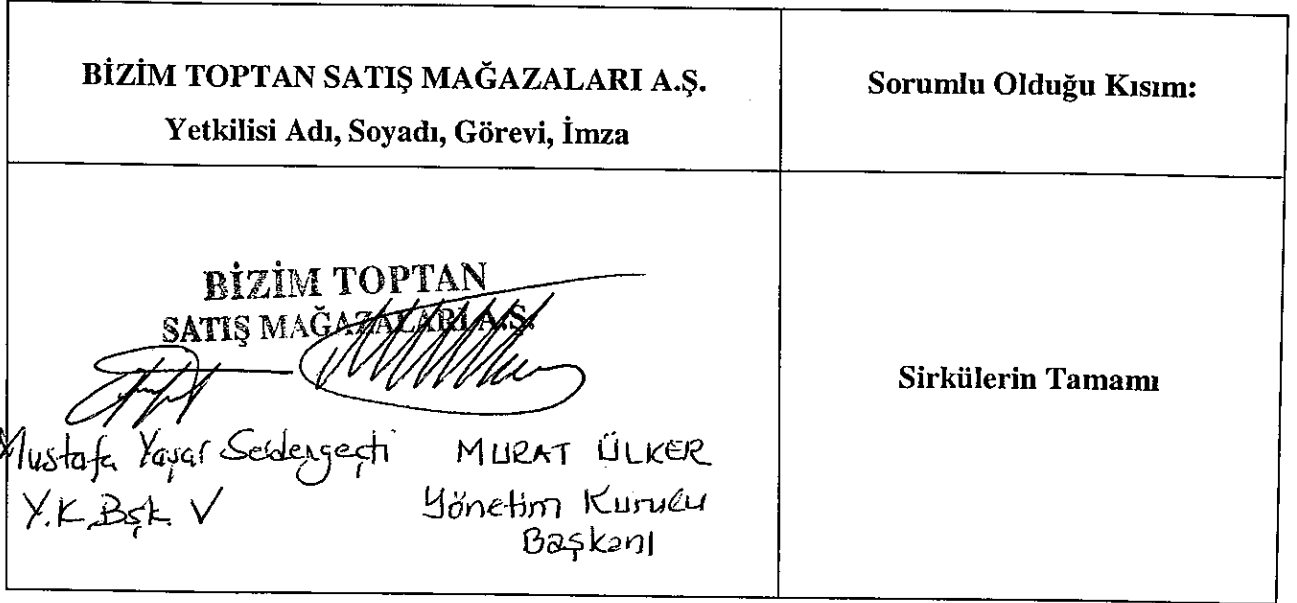 BİZİM TOPTAN SATIŞ MAĞAZALARI A.Ş.
Yetkilisi Adı, Soyadı, Görevi, İmza
Sorumlu Olduğu Kısım:
BİZİM TOPTAN
SATIŞ MAĞAZALARI A.Ş.
Mustafa Yaşar Serdengeçti
Y.K. Bşk. V
MURAT ÜLKER
Yönetim Kurulu
Başkanı
Sirkülerin Tamamı